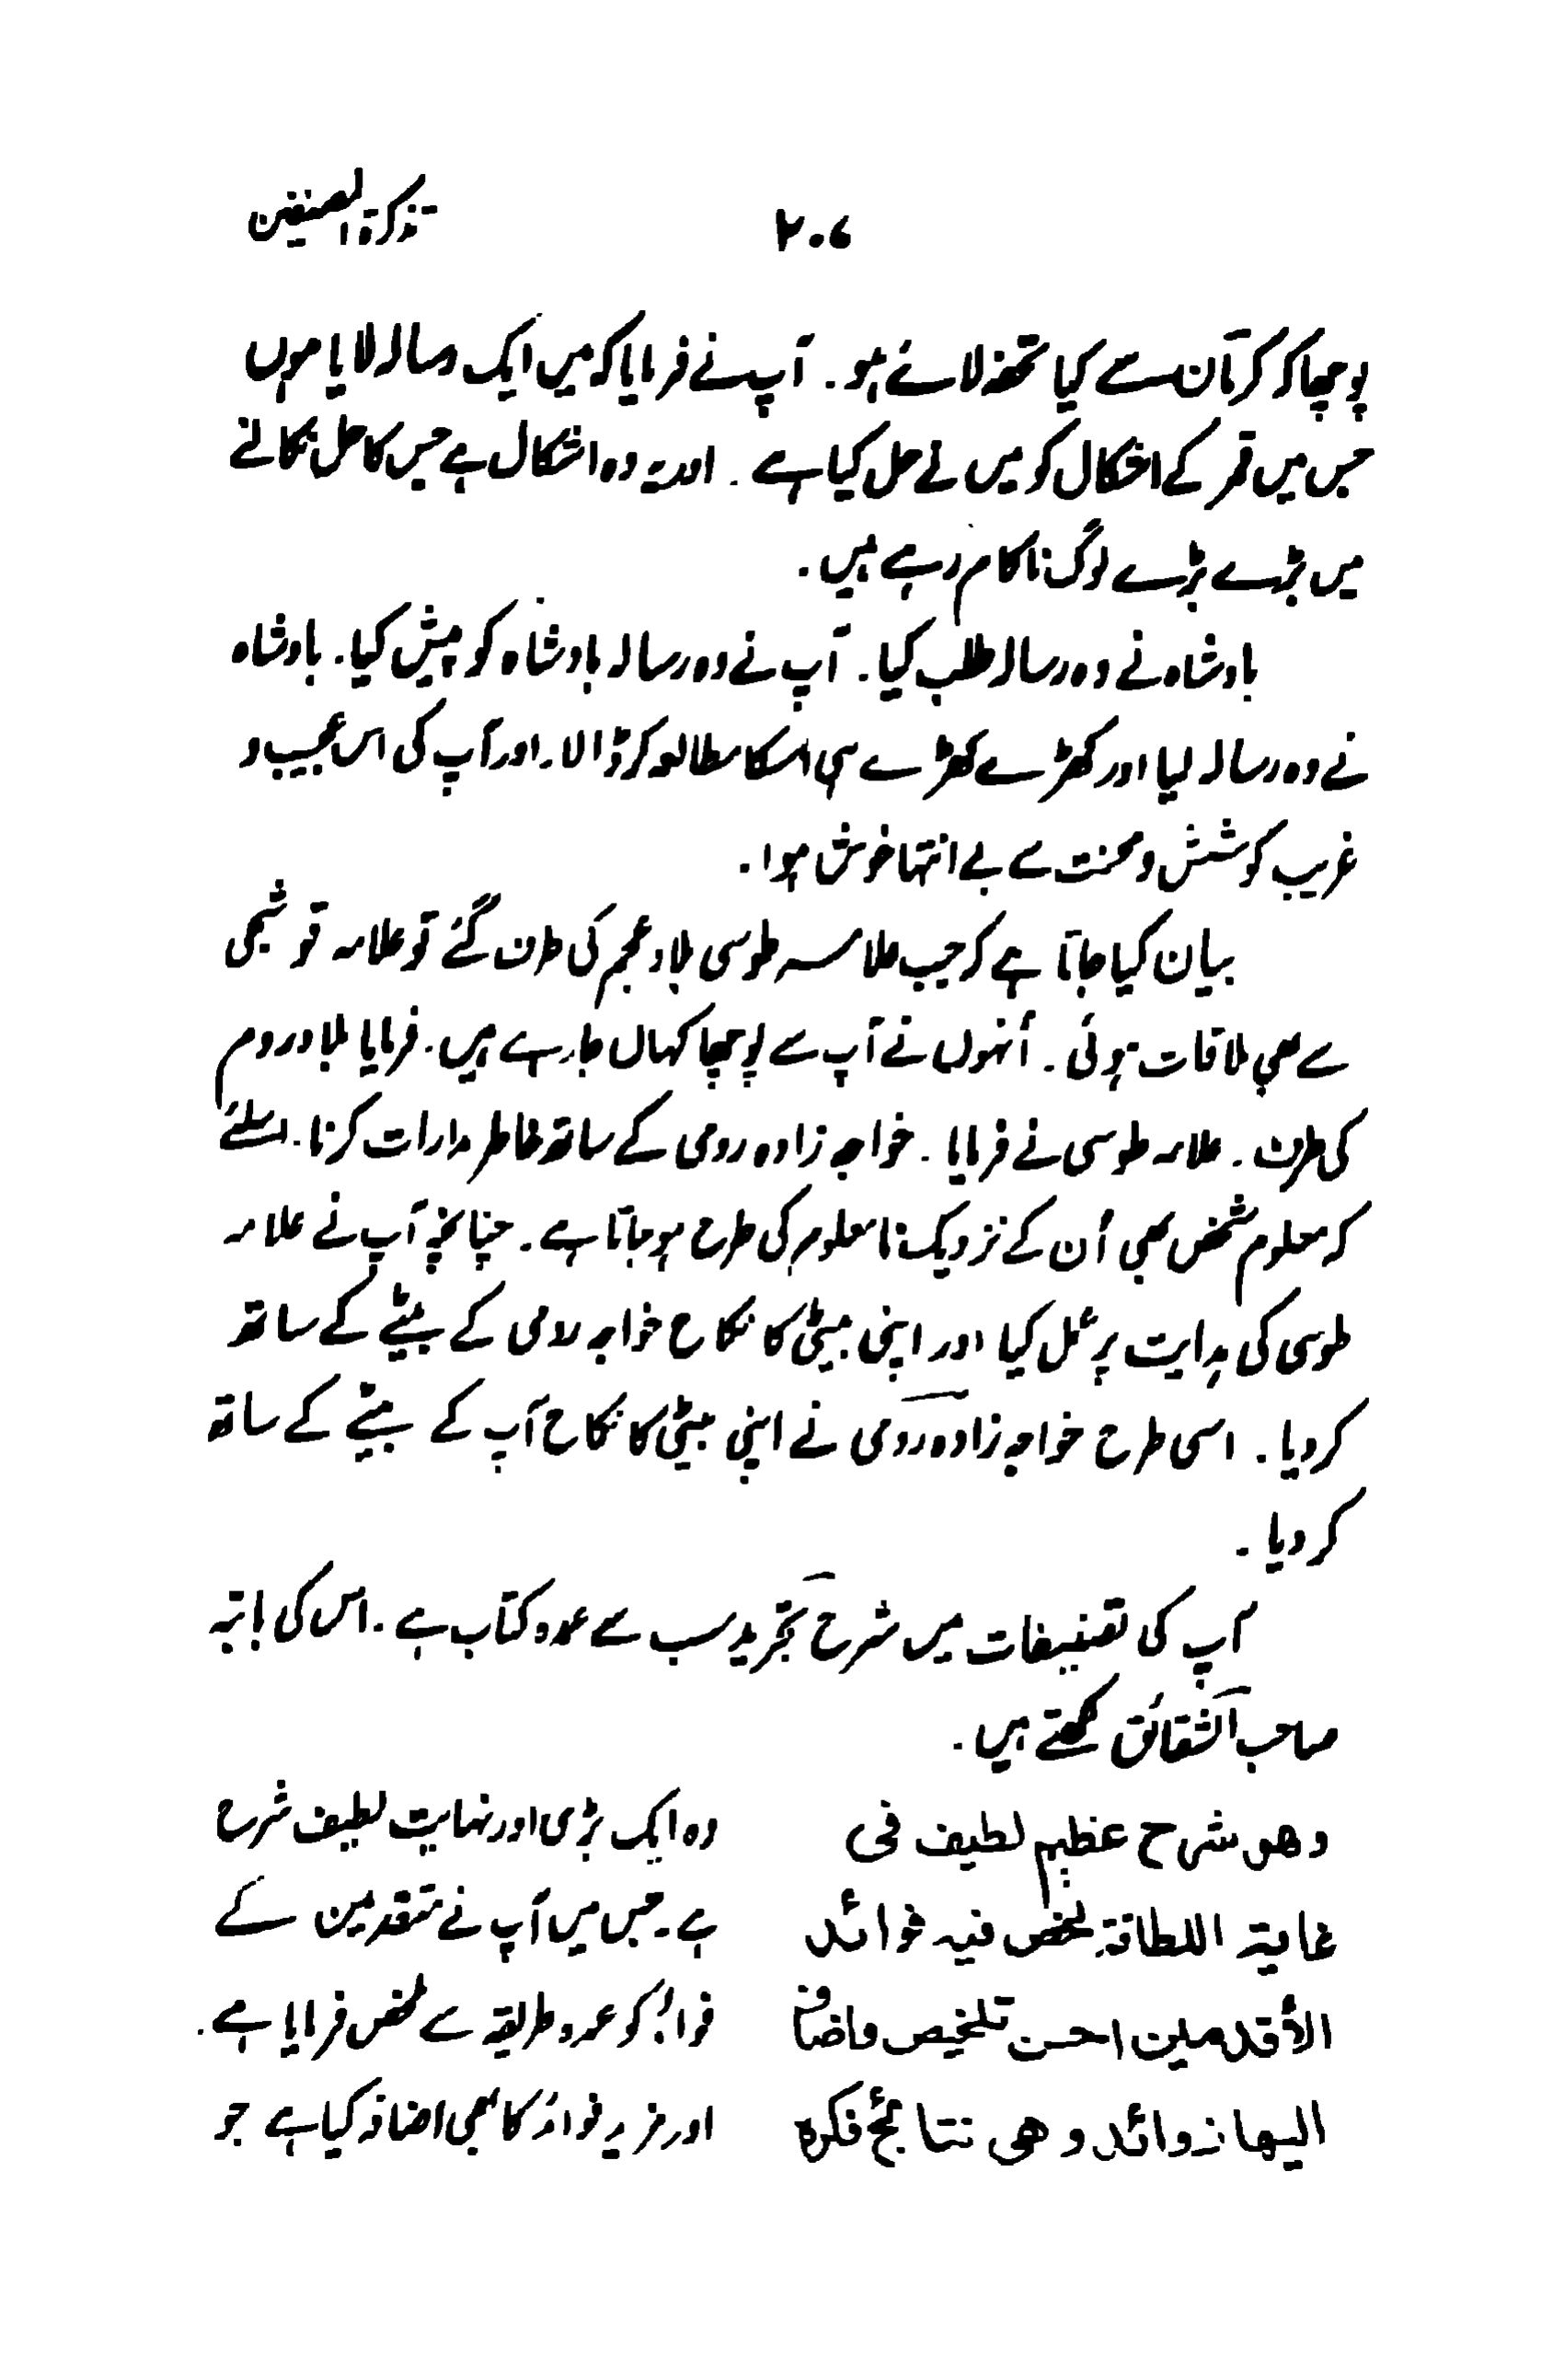 تذکرۃ المصنفین
۲۰۷
پوچھا کہ کرمان سے کیا تحفہ لائے ہو۔ آپ نے فرمایا کہ میں ایک رسالہ لایا ہوں
جس میں قمر کے اشکال کو میں نے حل کیا ہے۔ اور یہ وہ اشکال ہے جس کا حل نکالنے
میں بڑے بڑے لوگ ناکام رہے ہیں۔
بادشاہ نے وہ رسالہ طلب کیا۔ آپ نے وہ رسالہ بادشاہ کو پیش کیا۔ بادشاہ
نے وہ رسالہ لیا اور کھڑے کھڑے ہی اسکا مطالعہ کر ڈالا۔ اور آپ کی اس عجیب و
غریب کوشش و محنت سے بے انتہا خوش ہوا۔
بیان کیا جاتا ہے کہ جب علامہ طوسی بلاد عجم کی طرف گئے تو علامہ قوشجی
سے بھی ملاقات ہوئی۔ اُنہوں نے آپ سے پوچھا کہاں جا رہے ہیں۔ فرمایا بلاد روم
کی طرف۔ علامہ طوسی نے فرمایا۔ خواجہ زادہ رومی کے ساتھ خاطر مدارات کرنا۔ اسلئے
کہ معلوم شخص بھی اُن کے نزدیک نامعلوم کی طرح ہو جاتا ہے۔ چنانچہ آپ نے علامہ
طوسی کی ہدایت پر عمل کیا اور اپنی بیٹی کا نکاح خواجہ رومی کے بیٹے کے ساتھ
کردیا۔ اسی طرح خواجہ زادہ رومی نے اپنی بیٹی کا نکاح آپ کے بیٹے کے ساتھ
کر دیا۔
آپ کی تصنیفات میں شرح تجرید سب سے عمدہ کتاب ہے۔ اس کی بابتہ
صاحب الشقائق لکھتے ہیں۔
وھو شرح عظیم لطیف فی
غایۃ اللطافۃ لخص فیہ فوائد
الأقدمین احسن تلخیص واضاف
الیھا زوائد وھی نتائج فکرہ
وہ ایک بڑی اور نہایت لطیف شرح
ہے۔ جس میں آپ نے متقدمین کے
فوائد کو عمدہ طریقہ سے ملخص فرمایا ہے۔
اور مزید فوائد کا بھی اضافہ کیا ہے جو